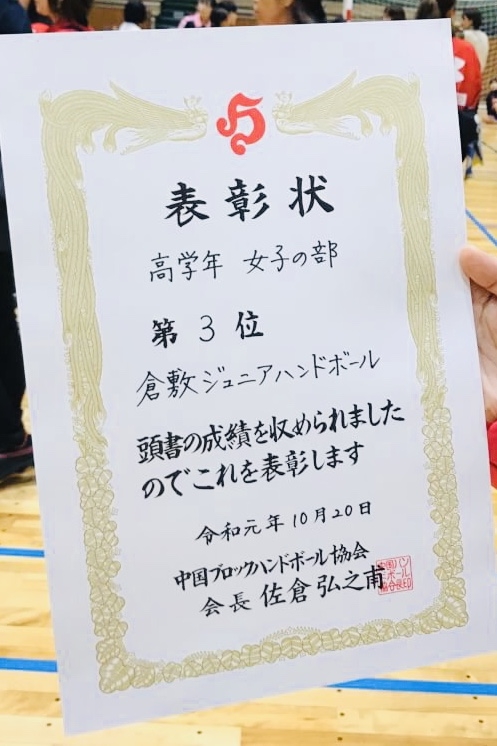 表彰状
高学年 女子の部
第3位
倉敷ジュニアハンドボール
頭書の成績を収められました
のでこれを表彰します
令和元年10月20日
中国ブロックハンドボール協会
会長 佐倉弘之甫